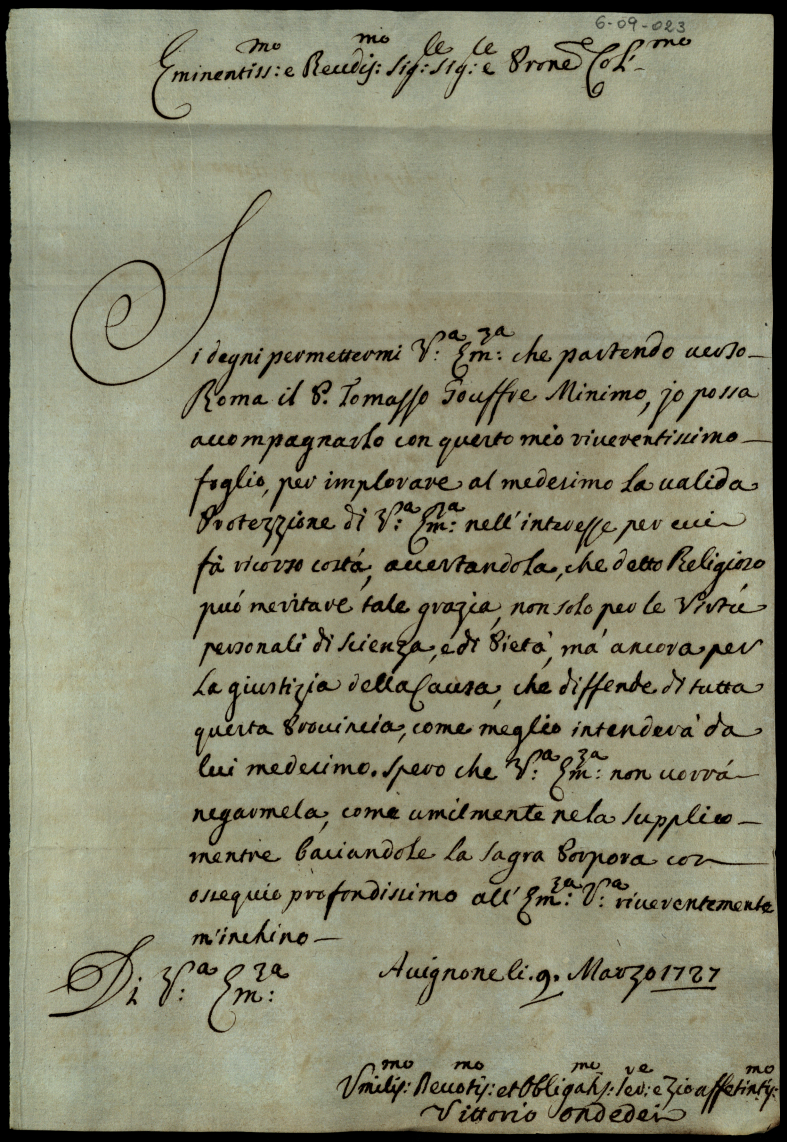 6-09-023
Eminentiss:mo e Reudis:mo sig:le sig:le e Prone Col:mo
Si degni permettermi V:a Em:za che partendo uerso
Roma il P. Tomasso Gouffre Minimo, jo possa
accompagnarlo con questo mio riuerentissimo
foglio, per implorare al medesimo la ualida
Protezzione di V:a Em:za nell'interesse per cui
fà ricorso costá, accertandola, che detto Religioso
puó meritare tale grazia, non solo per le Virtù
personali di scienza, e di Pietà, mà ancora per
la giustizia della Causa, che diffende di tutta
questa Prouincia, come meglio intenderà da
lui medesimo. Spero che V:a Em:za non uorrá
negarmela, come umilmente ne la supplico
mentre baciandole la sagra Porpora con
ossequio profondissimo all'Em:za V:a riuerentemente
m'inchino
Di V:a Em:za
Auignone li. 9. Marzo 1727
Vmilis:mo Deuotis:mo et Obligatis:mo Ser:re e Zio affetintis:mo
Vittorio Ondedei